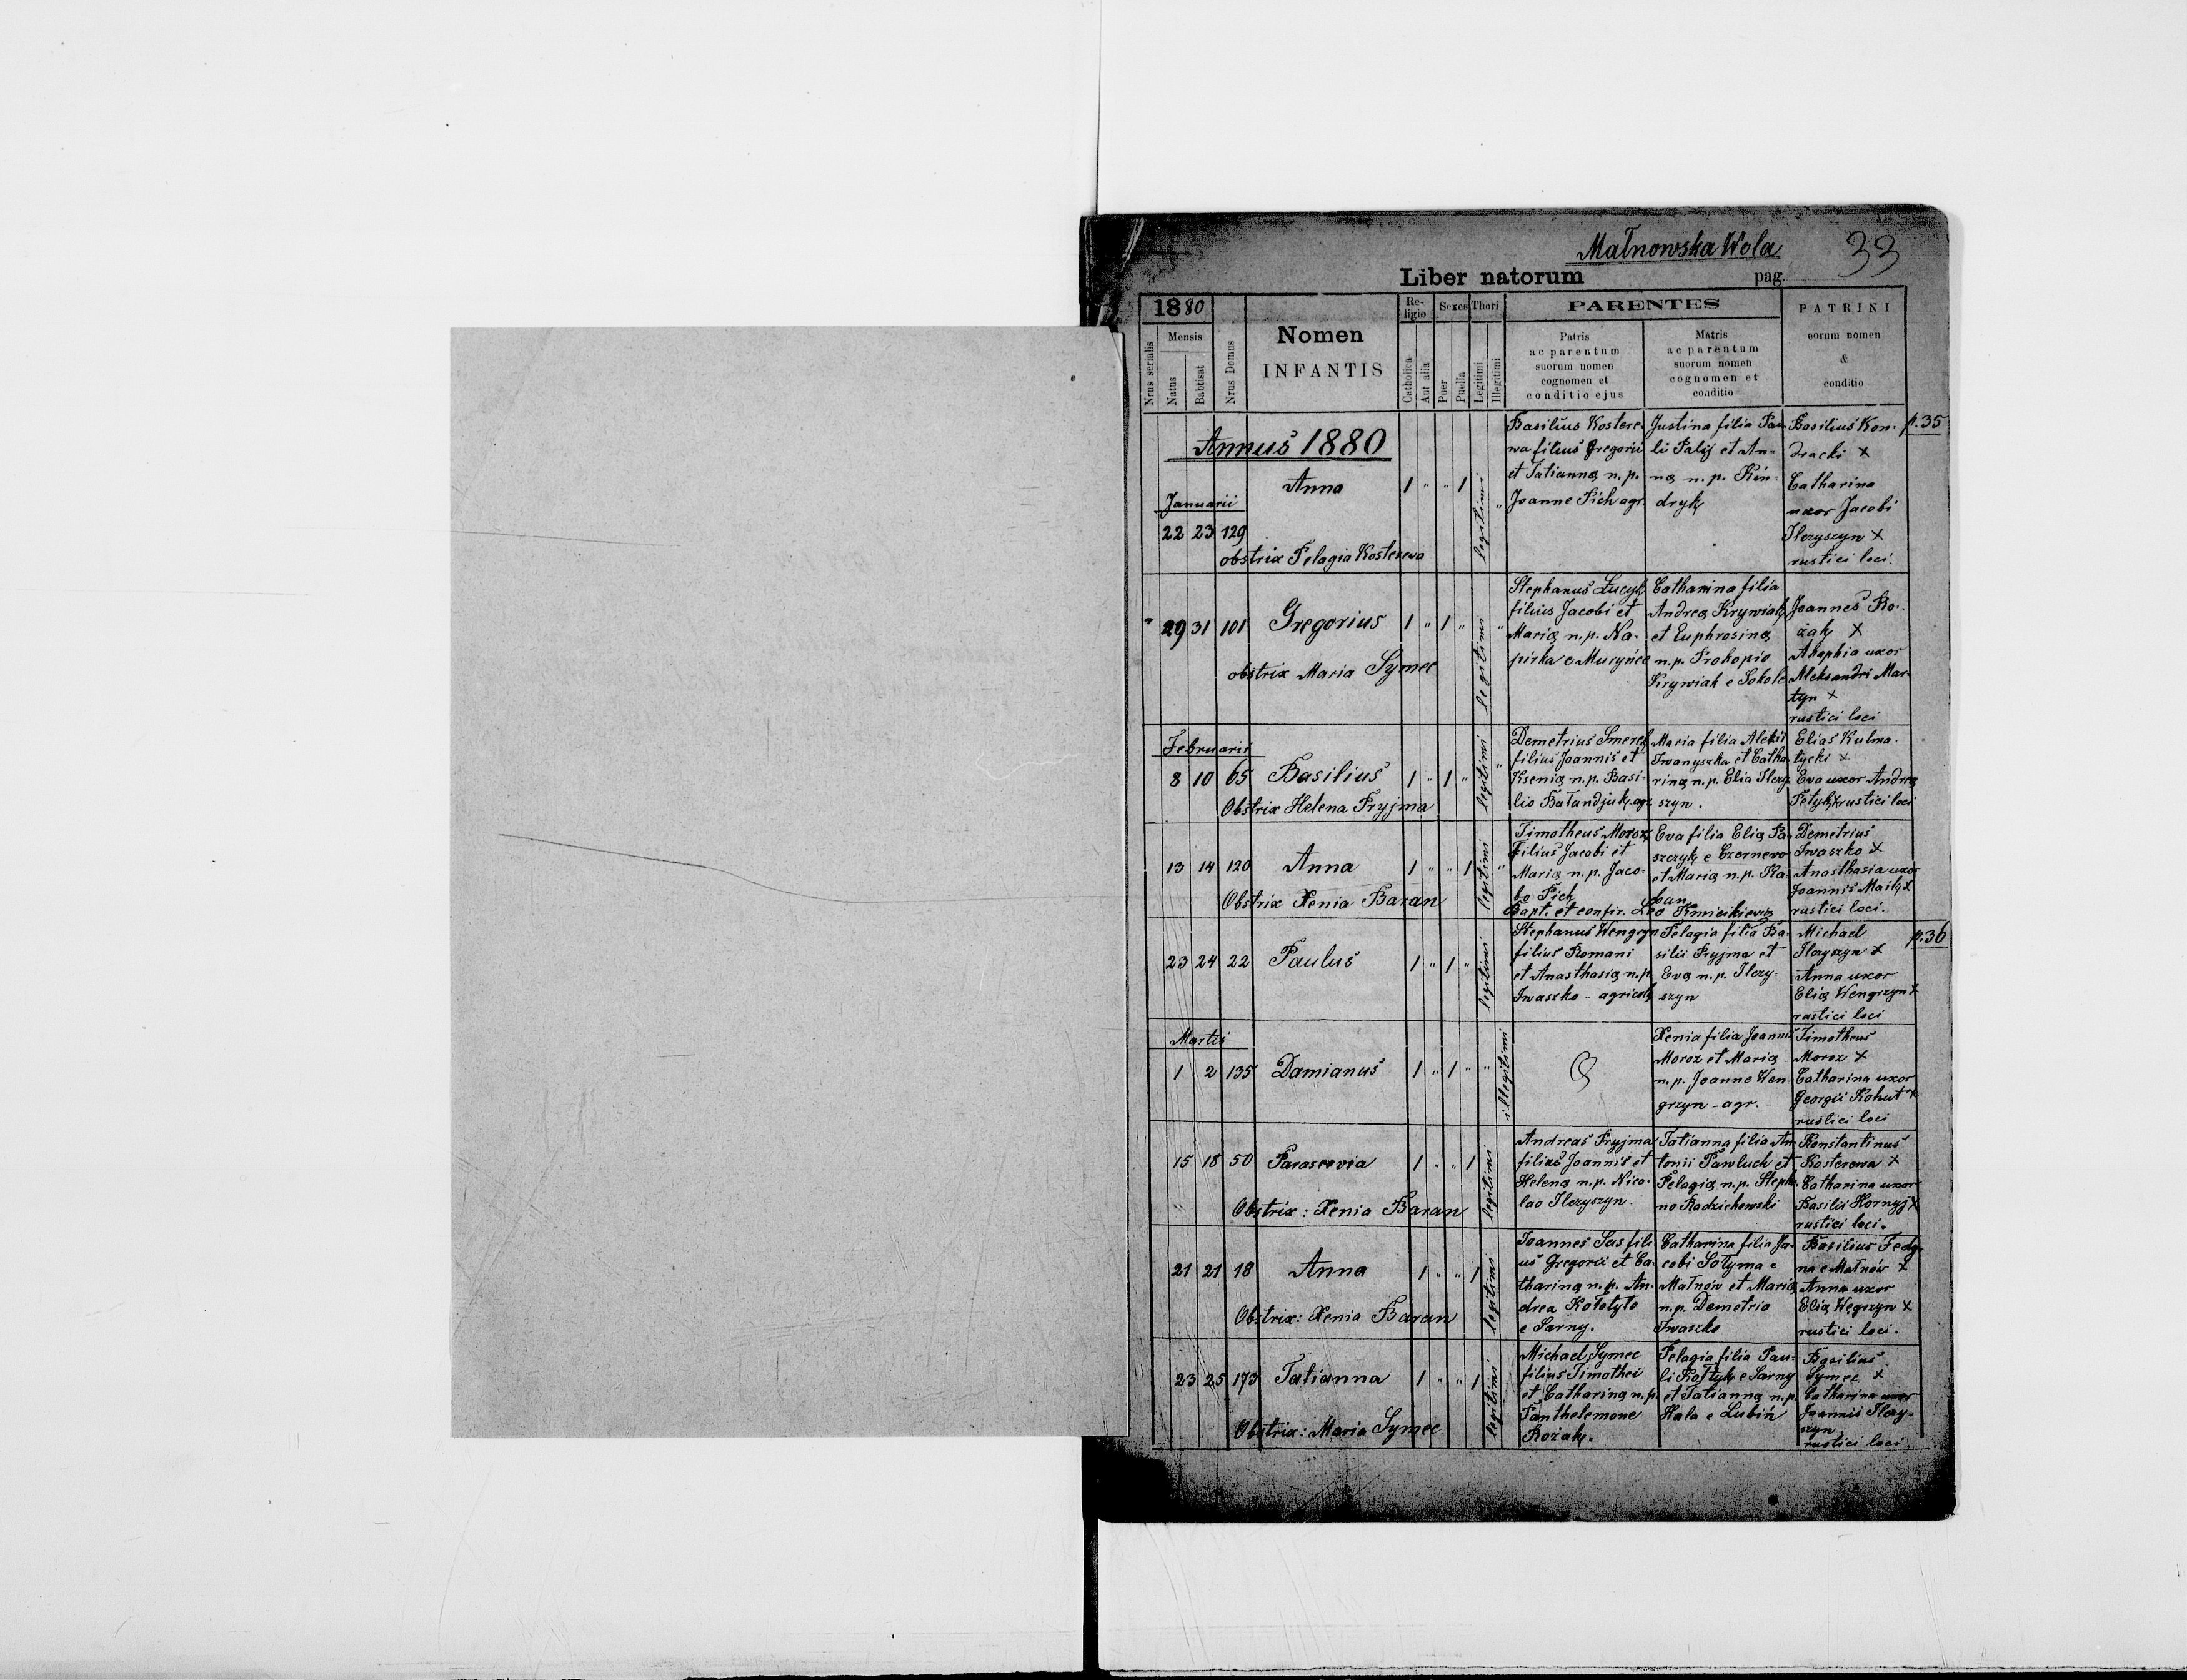 Małnowska Wola
33
Liber natorum pag.
1880
Mensis
Nrus serialis
Natus
Babtisat
Nrus Domus
Nomen
INFANTIS
Re-
ligio
Catholica
Aut alia
Sexes
Puer
Puella
Thori
Legitimi
Illegitimi
PARENTES
Patris
ac parentum
suorum nomen
cognomen et
conditio ejus
Matris
ac parentum
suorum nomen
cognomen et
conditio
PATRINI
eorum nomen
&
conditio
Annus 1880
Januarii
22 23 129
Anna
1 " " 1 legitimi "
obstrix Pelagia Kosterewa
Basilius Kostere-
wa filius Gregorii
et Tatianna n. p.
Joanne Pich agr.
Justina filia Pau-
li Palij et An-
na n. p. Kin-
dryk
Basilius Kon-
dracki ×
Catharina
uxor Jacobi
Ilczyszyn ×
rustici loci.
p. 35
" 29 31 101
Gregorius
1 " 1 " legitimi "
obstrix Maria Symec
Stephanus Łucyk
filius Jacobi et
Maria n. p. Na-
pirka e Muryńce
Catharina filia
Andrea Krywiak
et Euphrosina
n. p. Prokopio
Krywiak e Sokole
Joannes Ro-
żak ×
Ahaphia uxor
Aleksandri Mar-
tyn ×
rustici loci
Februarii
8 10 65
Basilius
1 " 1 " legitimi "
Obstrix Helena Pryjma
Demetrius Smerek
filius Joannis et
Ksenia n. p. Basi-
lio Bałandjuk agr
Maria filia Aleksii
Iwanyszka et Catha-
rina n. p. Elia Ilczy-
szyn.
Elias Kulma-
tycki ×
Eva uxor Andrea
Petyk × rustici loci
13 14 120
Anna
1 " " 1 legitimi "
Obstrix Xenia Baran
Timotheus Moroz
filius Jacobi et
Maria n. p. Jaco-
bo Pich
Eva filia Elia Pa-
szczyk e Czernewo
et Maria n. p. Ka-
ban
Demetrius
Iwaszko ×
Anasthasia uxor
Joannis Mailo ×
rustici loci.
Bapt. et confir. Leo Kmicikiewicz
23 24 22
Paulus
1 " 1 " legitimi
Stephanus Wengryn
filius Romani
et Anasthasia n. p.
Iwaszko - agricola
Pelagia filia Ba-
silii Pryjma et
Eva n. p. Ilczy-
szyn
Michael
Ilczyszyn ×
Anna uxor
Elia Wengrzyn ×
rustici loci
p. 36
Martii
1 2 135
Damianus
1 " 1 " " illegitimi
Xenia filia Joannis
Moroz et Maria
n. p. Joanne Wen-
grzyn - agr.
Timotheus
Moroz ×
Catharina uxor
Georgii Kohut ×
rustici loci
15 18 50
Parascevia
1 " " 1 legitimi
Obstrix: Xenia Baran
Andreas Pryjma
filius Joannis et
Helena n. p. Nico-
lao Ilczyszyn.
Tatianna filia An-
tonii Pawluch et
Pelagia n. p. Stepha-
no Radzichowski
Konstantinus
Kosterewa ×
Catharina uxor
Basilii Hornyj ×
rustici loci.
21 21 18
Anna
1 " " 1 legitimi
Obstrix: Xenia Baran
Joannes Sas fili-
us Gregorii et Ca-
tharina n. p. An-
drea Kołotyło
e Sarny.
Catharina filia Ja-
cobi Sołyma e
Małnów et Maria
n. p. Demetrio
Iwaszko
Basilius Fedy-
na e Małnów ×
Anna uxor
Elia Węgrzyn ×
rustici loci.
23 25 173
Tatianna
1 " " 1 legitimi
Obstrix: Maria Symec
Michael Symec
filius Timothei
et Catharina n. p.
Panthelemone
Rożak.
Pelagia filia Pau-
li Kołtyk e Sarny
et Tatianna n. p.
Hala e Lubiń
Basilius
Symec ×
Catharina uxor
Joannis Ilczy-
szyn
rustici loci